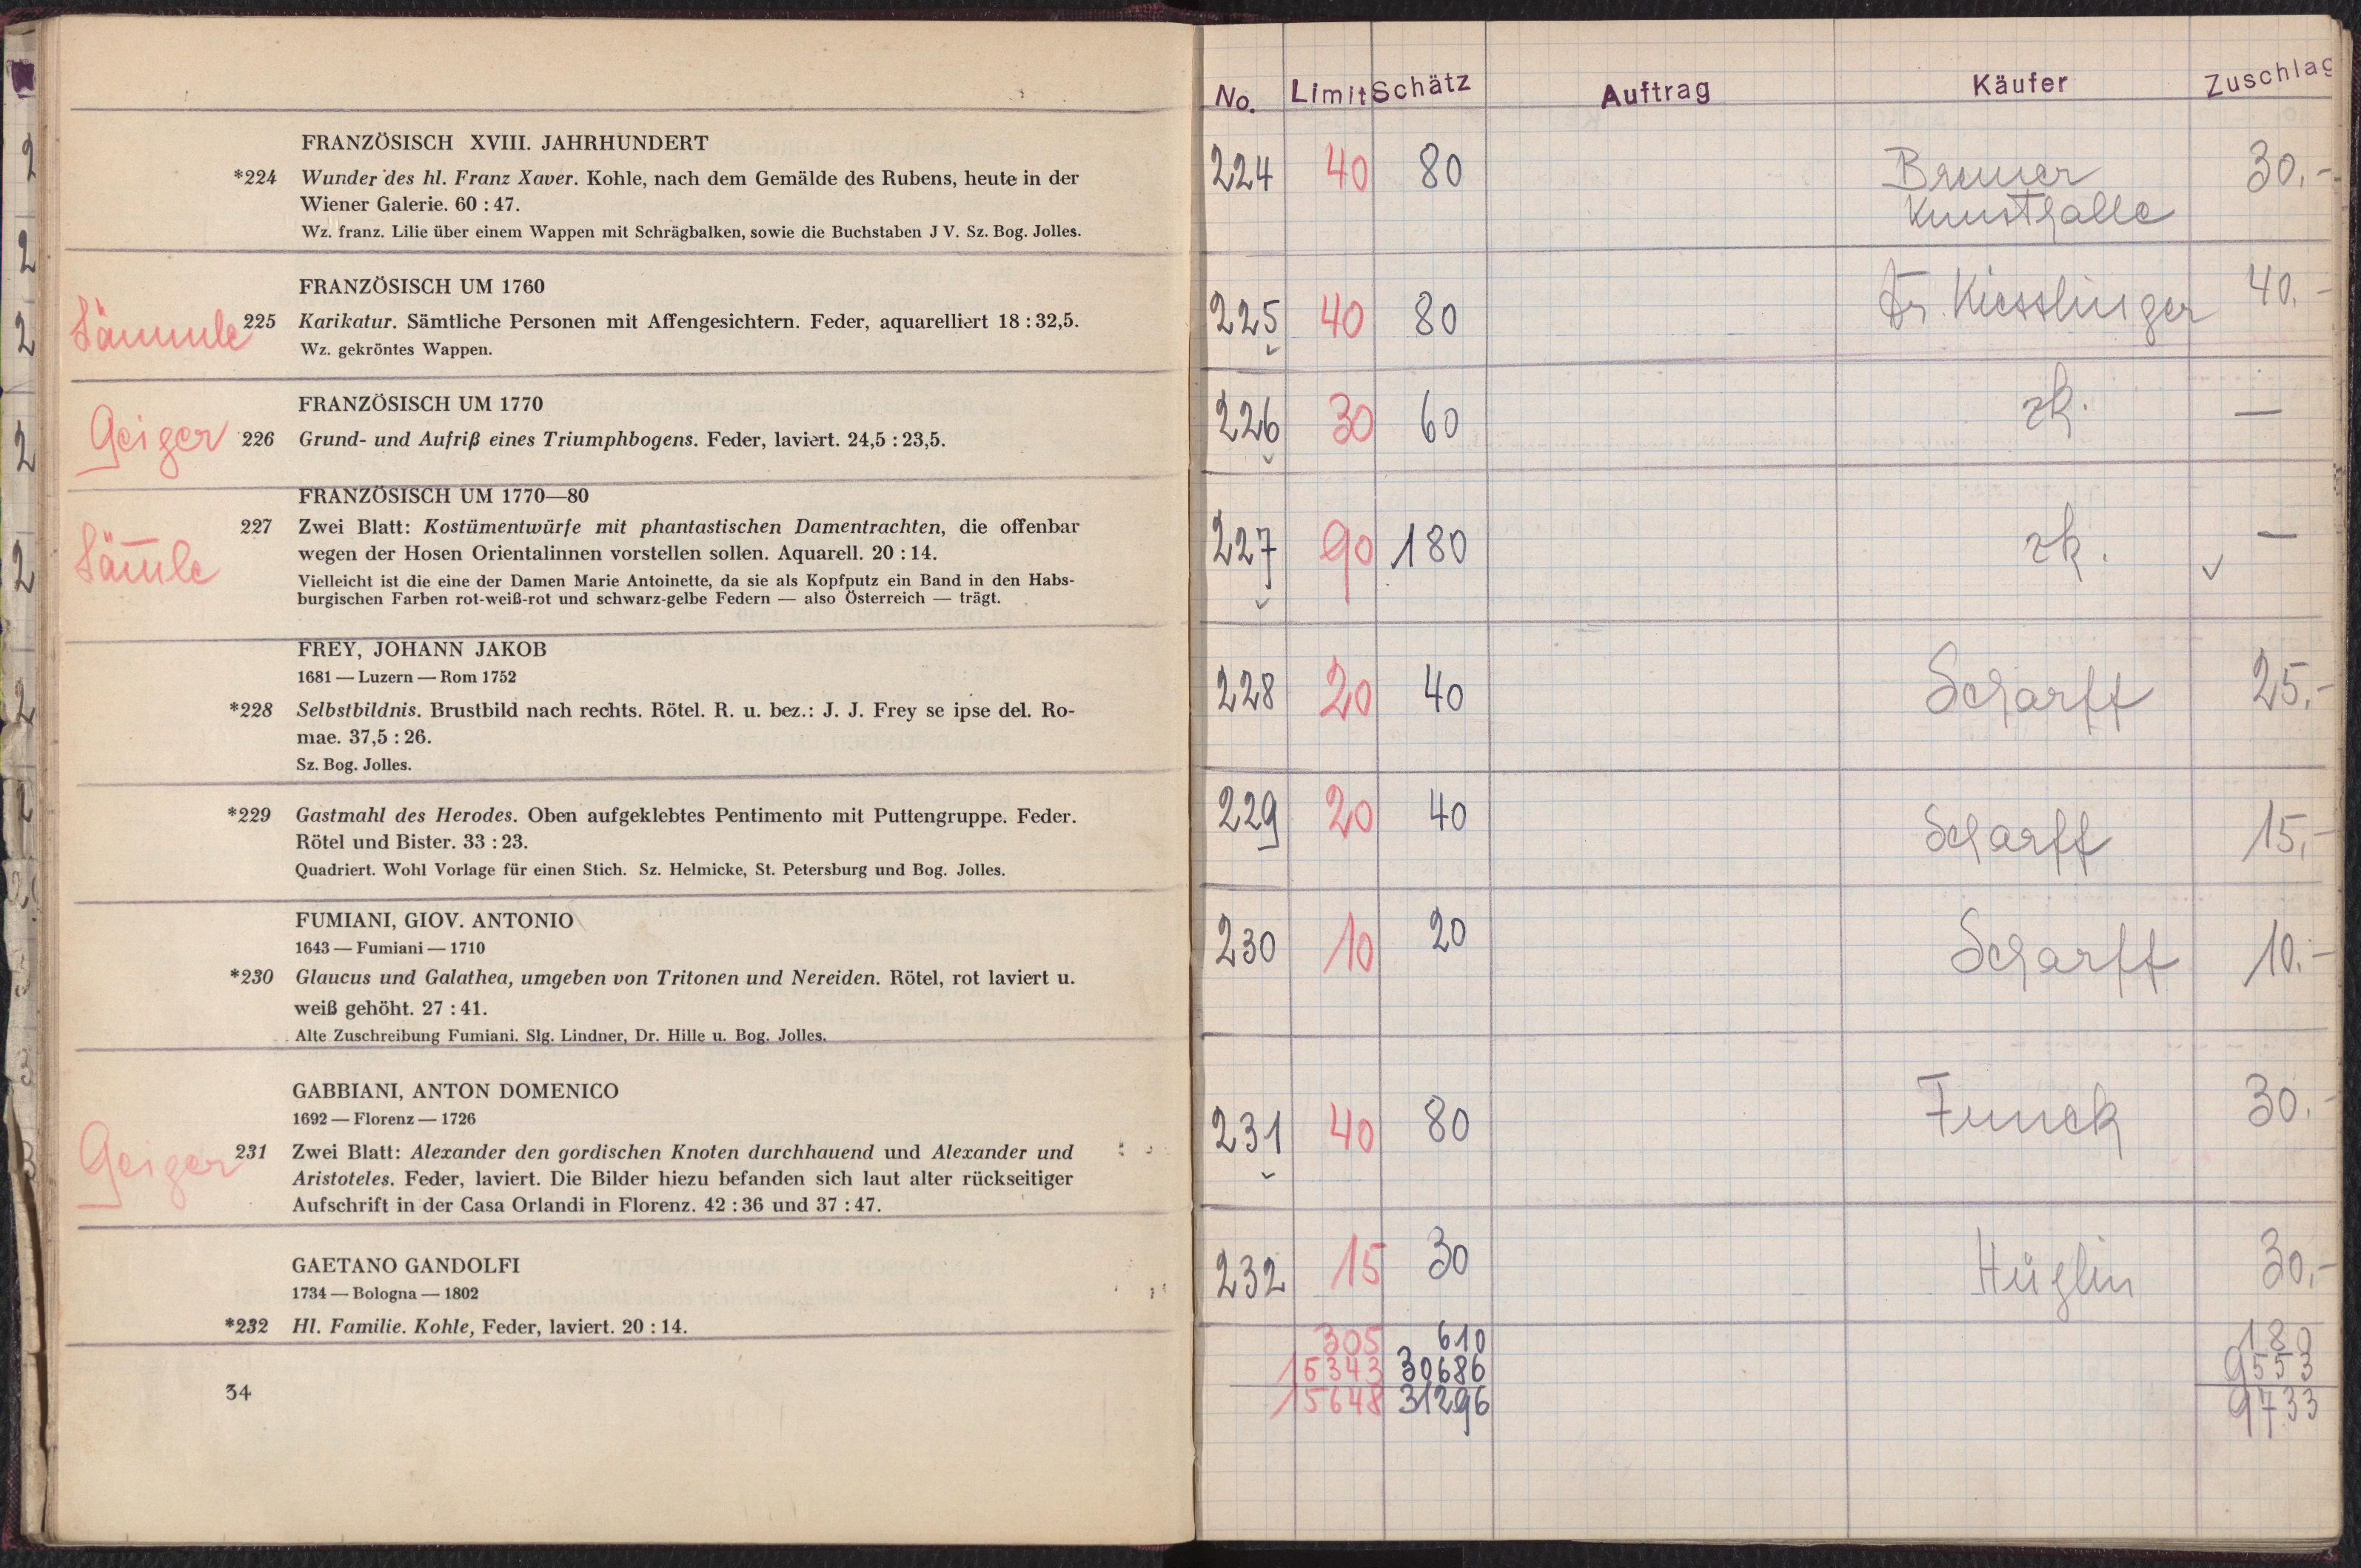 FRANZÖSISCH XVIII. JAHRHUNDERT
*224 Wunder des hl. Franz Xaver. Kohle, nach dem Gemälde des Rubens, heute in der
Wiener Galerie. 60 : 47.
Wz. franz. Lilie über einem Wappen mit Schrägbalken, sowie die Buchstaben J V. Sz. Bog. Jolles.
FRANZÖSISCH UM 1760
Sämmle 225 Karikatur. Sämtliche Personen mit Affengesichtern. Feder, aquarelliert 18 : 32,5.
Wz. gekröntes Wappen.
FRANZÖSISCH UM 1770
Geiger 226 Grund- und Aufriß eines Triumphbogens. Feder, laviert. 24,5 : 23,5.
FRANZÖSISCH UM 1770—80
227 Zwei Blatt: Kostümentwürfe mit phantastischen Damentrachten, die offenbar
Säm̅le wegen der Hosen Orientalinnen vorstellen sollen. Aquarell. 20 : 14.
Vielleicht ist die eine der Damen Marie Antoinette, da sie als Kopfputz ein Band in den Habs-
burgischen Farben rot-weiß-rot und schwarz-gelbe Federn — also Österreich — trägt.
FREY, JOHANN JAKOB
1681 — Luzern — Rom 1752
*228 Selbstbildnis. Brustbild nach rechts. Rötel. R. u. bez.: J. J. Frey se ipse del. Ro-
mae. 37,5 : 26.
Sz. Bog. Jolles.
*229 Gastmahl des Herodes. Oben aufgeklebtes Pentimento mit Puttengruppe. Feder.
Rötel und Bister. 33 : 23.
Quadriert. Wohl Vorlage für einen Stich. Sz. Helmicke, St. Petersburg und Bog. Jolles.
FUMIANI, GIOV. ANTONIO
1643 — Fumiani — 1710
*230 Glaucus und Galathea, umgeben von Tritonen und Nereiden. Rötel, rot laviert u.
weiß gehöht. 27 : 41.
Alte Zuschreibung Fumiani. Slg. Lindner, Dr. Hille u. Bog. Jolles.
GABBIANI, ANTON DOMENICO
1692 — Florenz — 1726
Geiger 231 Zwei Blatt: Alexander den gordischen Knoten durchhauend und Alexander und
Aristoteles. Feder, laviert. Die Bilder hiezu befanden sich laut alter rückseitiger
Aufschrift in der Casa Orlandi in Florenz. 42 : 36 und 37 : 47.
GAETANO GANDOLFI
1734 — Bologna — 1802
*232 Hl. Familie. Kohle, Feder, laviert. 20 : 14.
34
No. Limit Schätz Auftrag Käufer Zuschlag
224 40 80 Bremer 30.-
Kunsthalle
225 40 80 Dr. Kiesslinger 40.-
226 30 60 zk. —
227 90 180 zk. —
228 20 40 Scharff 25.-
229 20 40 Scharff 15.-
230 10 20 Scharff 10.-
231 40 80 Funck 30.-
232 15 30 Hüglin 30.-
305 610 180
15343 30686 9553
15648 31296 9733